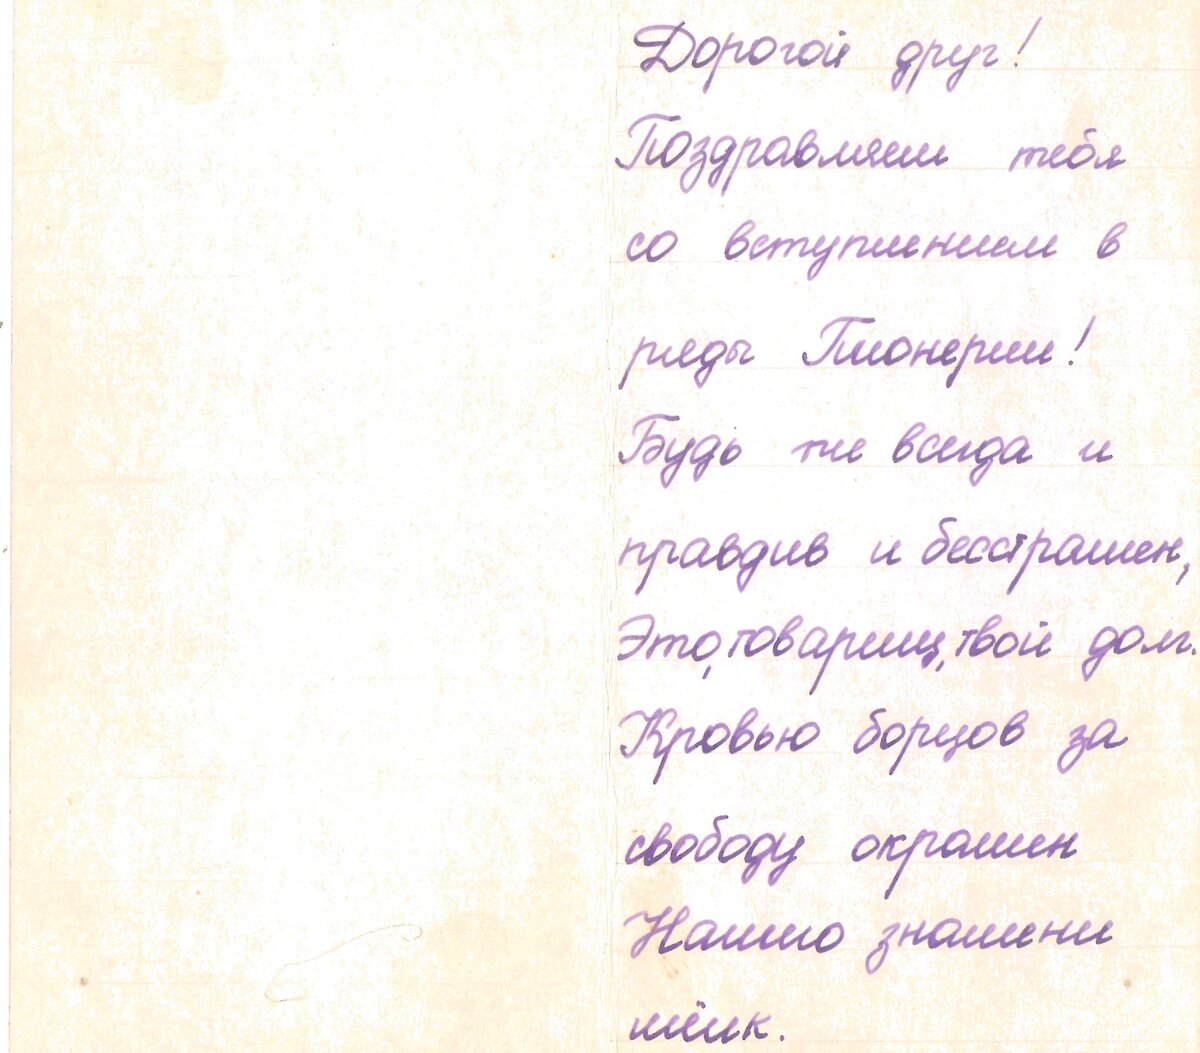 Дорогой друг!
Поздравляем тебя
со вступлением в
ряды Пионерии!
Будь же всегда и
правдив и бесстрашен,
Это, товарищ, твой долг.
Кровью борцов за
свободу окрашен
Нашего знамени
шёлк.